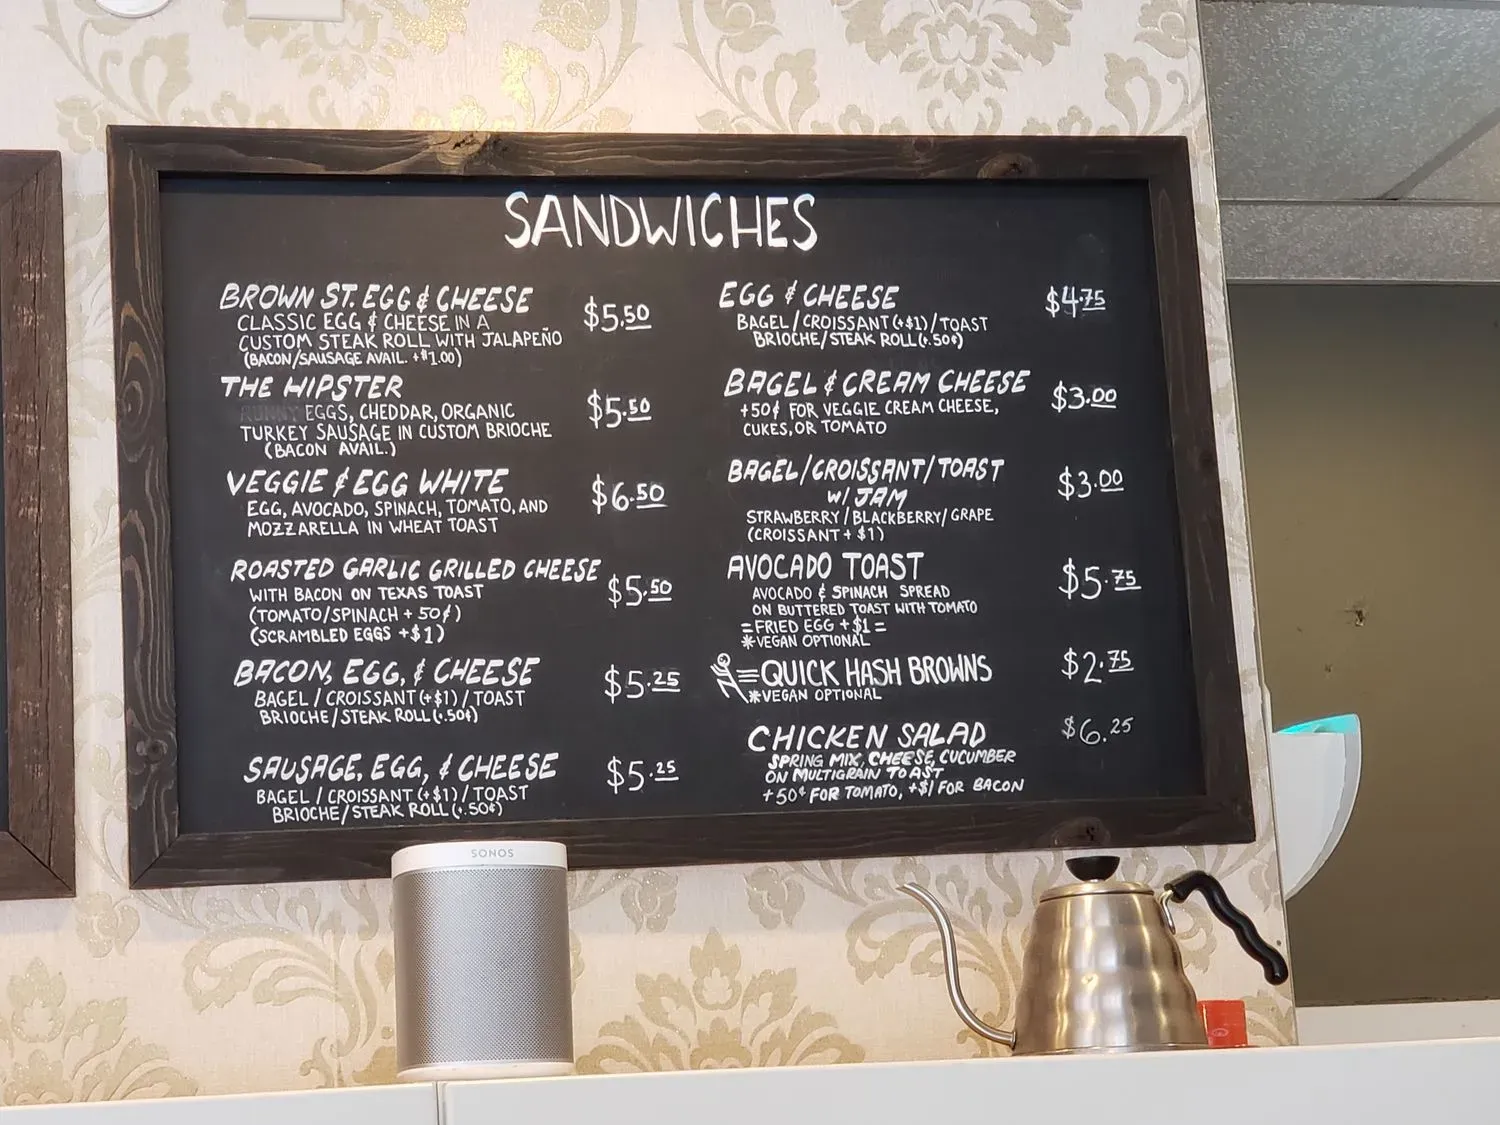 SANDWICHES
BROWN ST. EGG & CHEESE $5.50
CLASSIC EGG & CHEESE IN A
CUSTOM STEAK ROLL WITH JALAPEÑO
(BACON/SAUSAGE AVAIL. +$1.00)
THE HIPSTER $5.50
EGGS, CHEDDAR, ORGANIC
TURKEY SAUSAGE IN CUSTOM BRIOCHE
(BACON AVAIL.)
VEGGIE & EGG WHITE $6.50
EGG, AVOCADO, SPINACH, TOMATO, AND
MOZZARELLA IN WHEAT TOAST
ROASTED GARLIC GRILLED CHEESE $5.50
WITH BACON ON TEXAS TOAST
(TOMATO/SPINACH + 50¢)
(SCRAMBLED EGGS +$1)
BACON, EGG, & CHEESE $5.25
BAGEL / CROISSANT (+$1) / TOAST
BRIOCHE / STEAK ROLL (+.50¢)
SAUSAGE, EGG, & CHEESE $5.25
BAGEL / CROISSANT (+$1) / TOAST
BRIOCHE / STEAK ROLL (+.50¢)
EGG & CHEESE $4.75
BAGEL / CROISSANT (+$1) / TOAST
BRIOCHE/STEAK ROLL (+.50¢)
BAGEL & CREAM CHEESE $3.00
+50¢ FOR VEGGIE CREAM CHEESE,
CUKES, OR TOMATO
BAGEL/CROISSANT/TOAST $3.00
W/ JAM
STRAWBERRY / BLACKBERRY / GRAPE
(CROISSANT + $1)
AVOCADO TOAST $5.75
AVOCADO & SPINACH SPREAD
ON BUTTERED TOAST WITH TOMATO
= FRIED EGG + $1 =
*VEGAN OPTIONAL
QUICK HASH BROWNS $2.75
*VEGAN OPTIONAL
CHICKEN SALAD $6.25
SPRING MIX, CHEESE, CUCUMBER
ON MULTIGRAIN TOAST
+50¢ FOR TOMATO, +$1 FOR BACON
SONOS